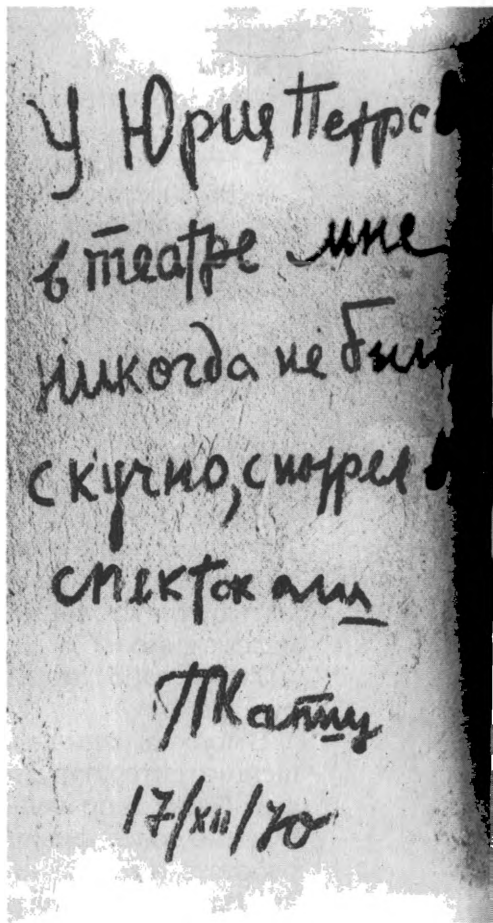 У Юрия Петро
в театре мне
никогда не был
скучно, смотрел
спектокали
ПКапиц
17/XII/70